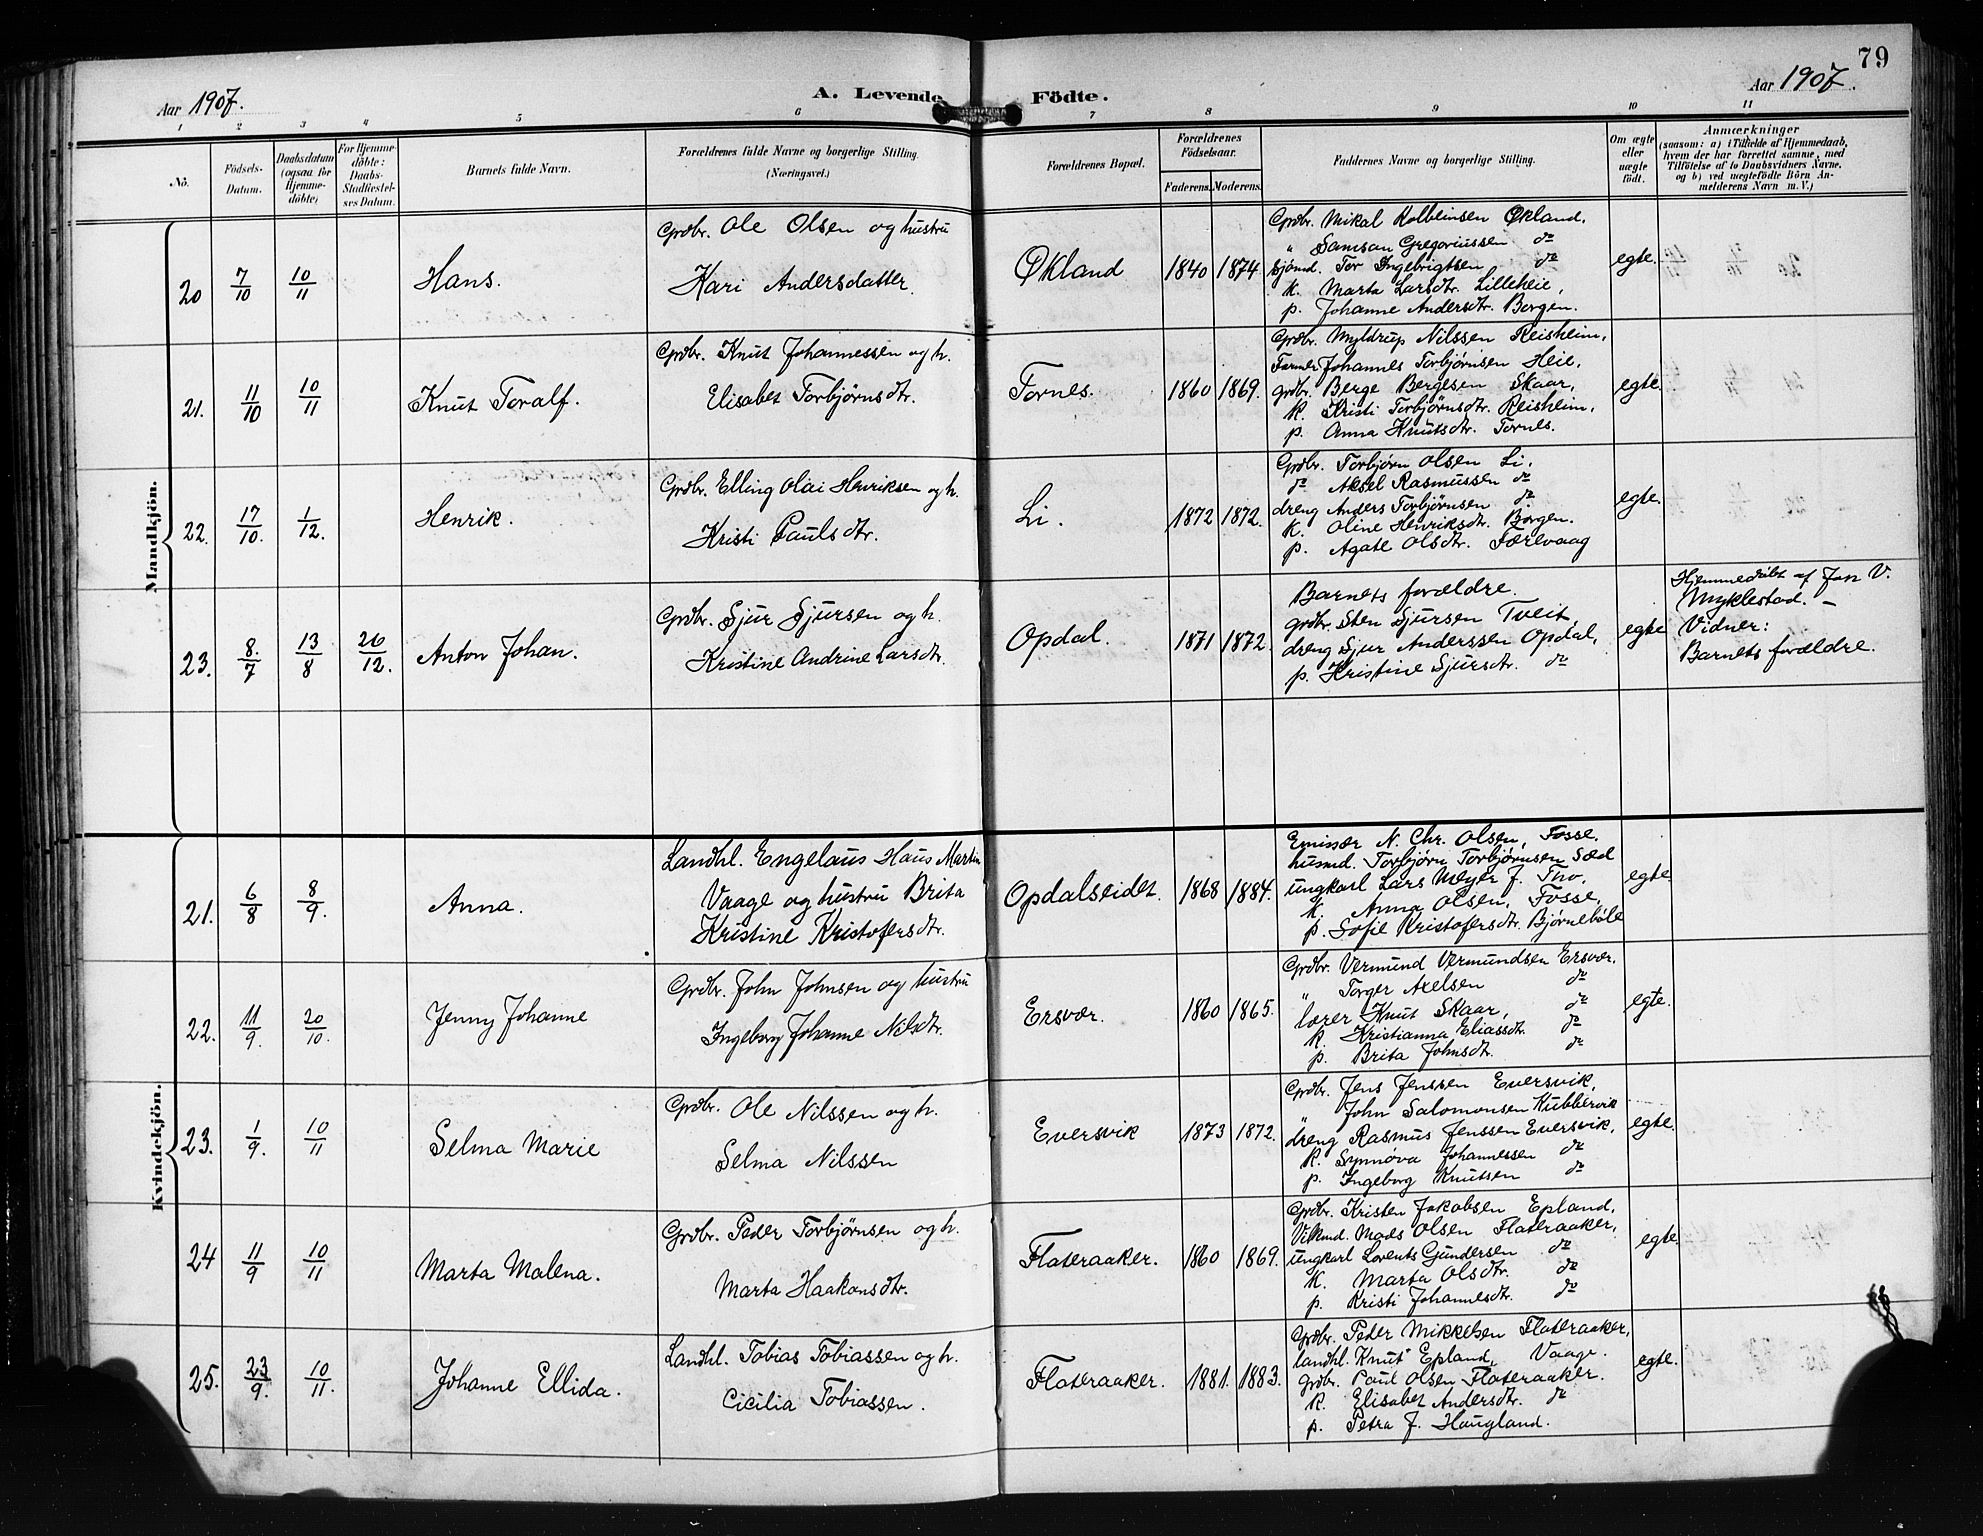 79
Aar 1907.
A. Levende Födte.
Aar 1907.
1 2 3 4 5 6 7 8 9 10 11
No.
Fødsels-Datum.
Daabsdatum (ogsaa for Hjemme-døbte)
For Hjemme-døbte: Daabs-Stadfæstel-ses Datum.
Barnets fulde Navn.
Forældrenes fulde Navne og borgerlige Stilling.
(Næringsvei.)
Forældrenes Bopæl.
Forældrenes Fødselsaar.
Faderens. Moderens.
Faddernes Navne og borgerlige Stilling.
Om ægte eller uægte født.
Anmærkninger
(saasom: a) i Tilfælde af Hjemmedaab,
hvem der har forrettet samme, med
Tilføielse af to Daabsvidners Navne,
og b) ved uægtefödte Börn An-
melderens Navn m. V.)
Mandkjön.
20 7/10 10/11 Hans.
Grdbr. Ole Olsen og hustru
Kari Andersdatter.
Økland 1840 1874.
Grdbr. Mikal Kolbeinsen Økland,
" Samson Gregoriussen do
sjømd. Tor Ingebrigtsen do
k. Marta Larsdtr. Lilleheie,
p. Johanne Andersdtr. Børgen.
egte.
21. 11/10 10/11 Knut Toralf.
Grdbr. Knut Johannessen og h.
Elisabet Torbjørnsdtr.
Tornes. 1860 1869.
Grdbr. Myldrup Nilssen Reisheim,
Farmer Johannes Torbjørnsen Heie,
grdbr. Berge Bergesen Skaar,
k. Kristi Torbjørnsdtr. Reisheim,
p. Anna Knutsdtr. Tornes.
egte.
22. 17/10. 1/12. Henrik.
Grdbr. Elling Olai Henriksen og h.
Kristi Paulsdtr.
Li. 1872 1872.
Grdbr. Torbjørn Olsen Li,
do Aksel Rasmussen do
dreng Anders Torbjørnsen do
K. Oline Henriksdtr. Børgen.
p. Agate Olsdtr. Færevaag
egte.
23. 8./7 13/8 26/12. Anton Johan.
Grdbr. Sjur Sjursen og h.
Kristine Andrine Larsdtr.
Opdal. 1871 1872.
Barnets forældre.
grdbr. Sten Sjursen Tveit,
dreng Sjur Anderssen Opdal,
p. Kristine Sjursdtr. do
egte
Hjemmedøbt af Jon V.
Myklestad. –
Vidner:
Barnets forældre.
Kvindekjön.
21. 6/8 8/9. Anna.
Landhl. Engelaus Haus Martin
Vaage og hustru Brita
Kristine Kristofersdtr.
Opdalseidet. 1868 1884.
Emissær N. Chr. Olsen, Fosse,
husmd. Torbjørn Torbjørnsen Sæd
ungkarl Lars Meyer J. Tho,
K. Anna Olsen, Fosse,
p. Sofie Kristofersdtr. Bjørnebøle
egte.
22. 11/9. 20/10. Jenny Johanne
Grdbr. John Johnsen og hustru
Ingeborg Johanne Nilsdtr.
Ersvær. 1860 1865.
Grdbr. Vermund Vermundsen Ersvær,
" Torger Axelsen do
lærer Knut Skaar, do
K. Kristianna Eliassdtr. do
p. Brita Johnsdtr. do
egte.
23. 1/9. 10/11 Selma Marie
Grdbr. Ole Nilssen og h.
Selma Nilssen
Eversvik 1873 1872.
Grdbr. Jens Jenssen Eversvik,
" John Salomonsen Kubbervik
dreng Rasmus Jenssen Eversvik,
K. Synnøva Johannessen do
p. Ingeborg Knutsen do
egte.
24 11/9 10/11 Marta Malena.
Grdbr. Peder Torbjørnsen og h.
Marta Haakonsdtr.
Flateraaker. 1860 1869.
Grdbr. Kristen Jakobsen Epland,
Vilkmd. Mads Olsen Flateraaker,
ungkarl Lorents Gundersen do
K. Marta Olsdtr. do
p. Kristi Johannesdtr. do
egte.
25. 23/9. 10/11. Johanne Ellida.
Landhl. Tobias Tobiassen og h.
Cicilia Tobiassen.
Flateraaker. 1881. 1883.
Grdbr. Peder Mikkelsen Flateraaker,
landhl. Knut Epland, Vaage.
grdbr. Paul Olsen Flateraaker.
K. Elisabet Andersdtr. do
p. Petra J. Haugland.
egte.